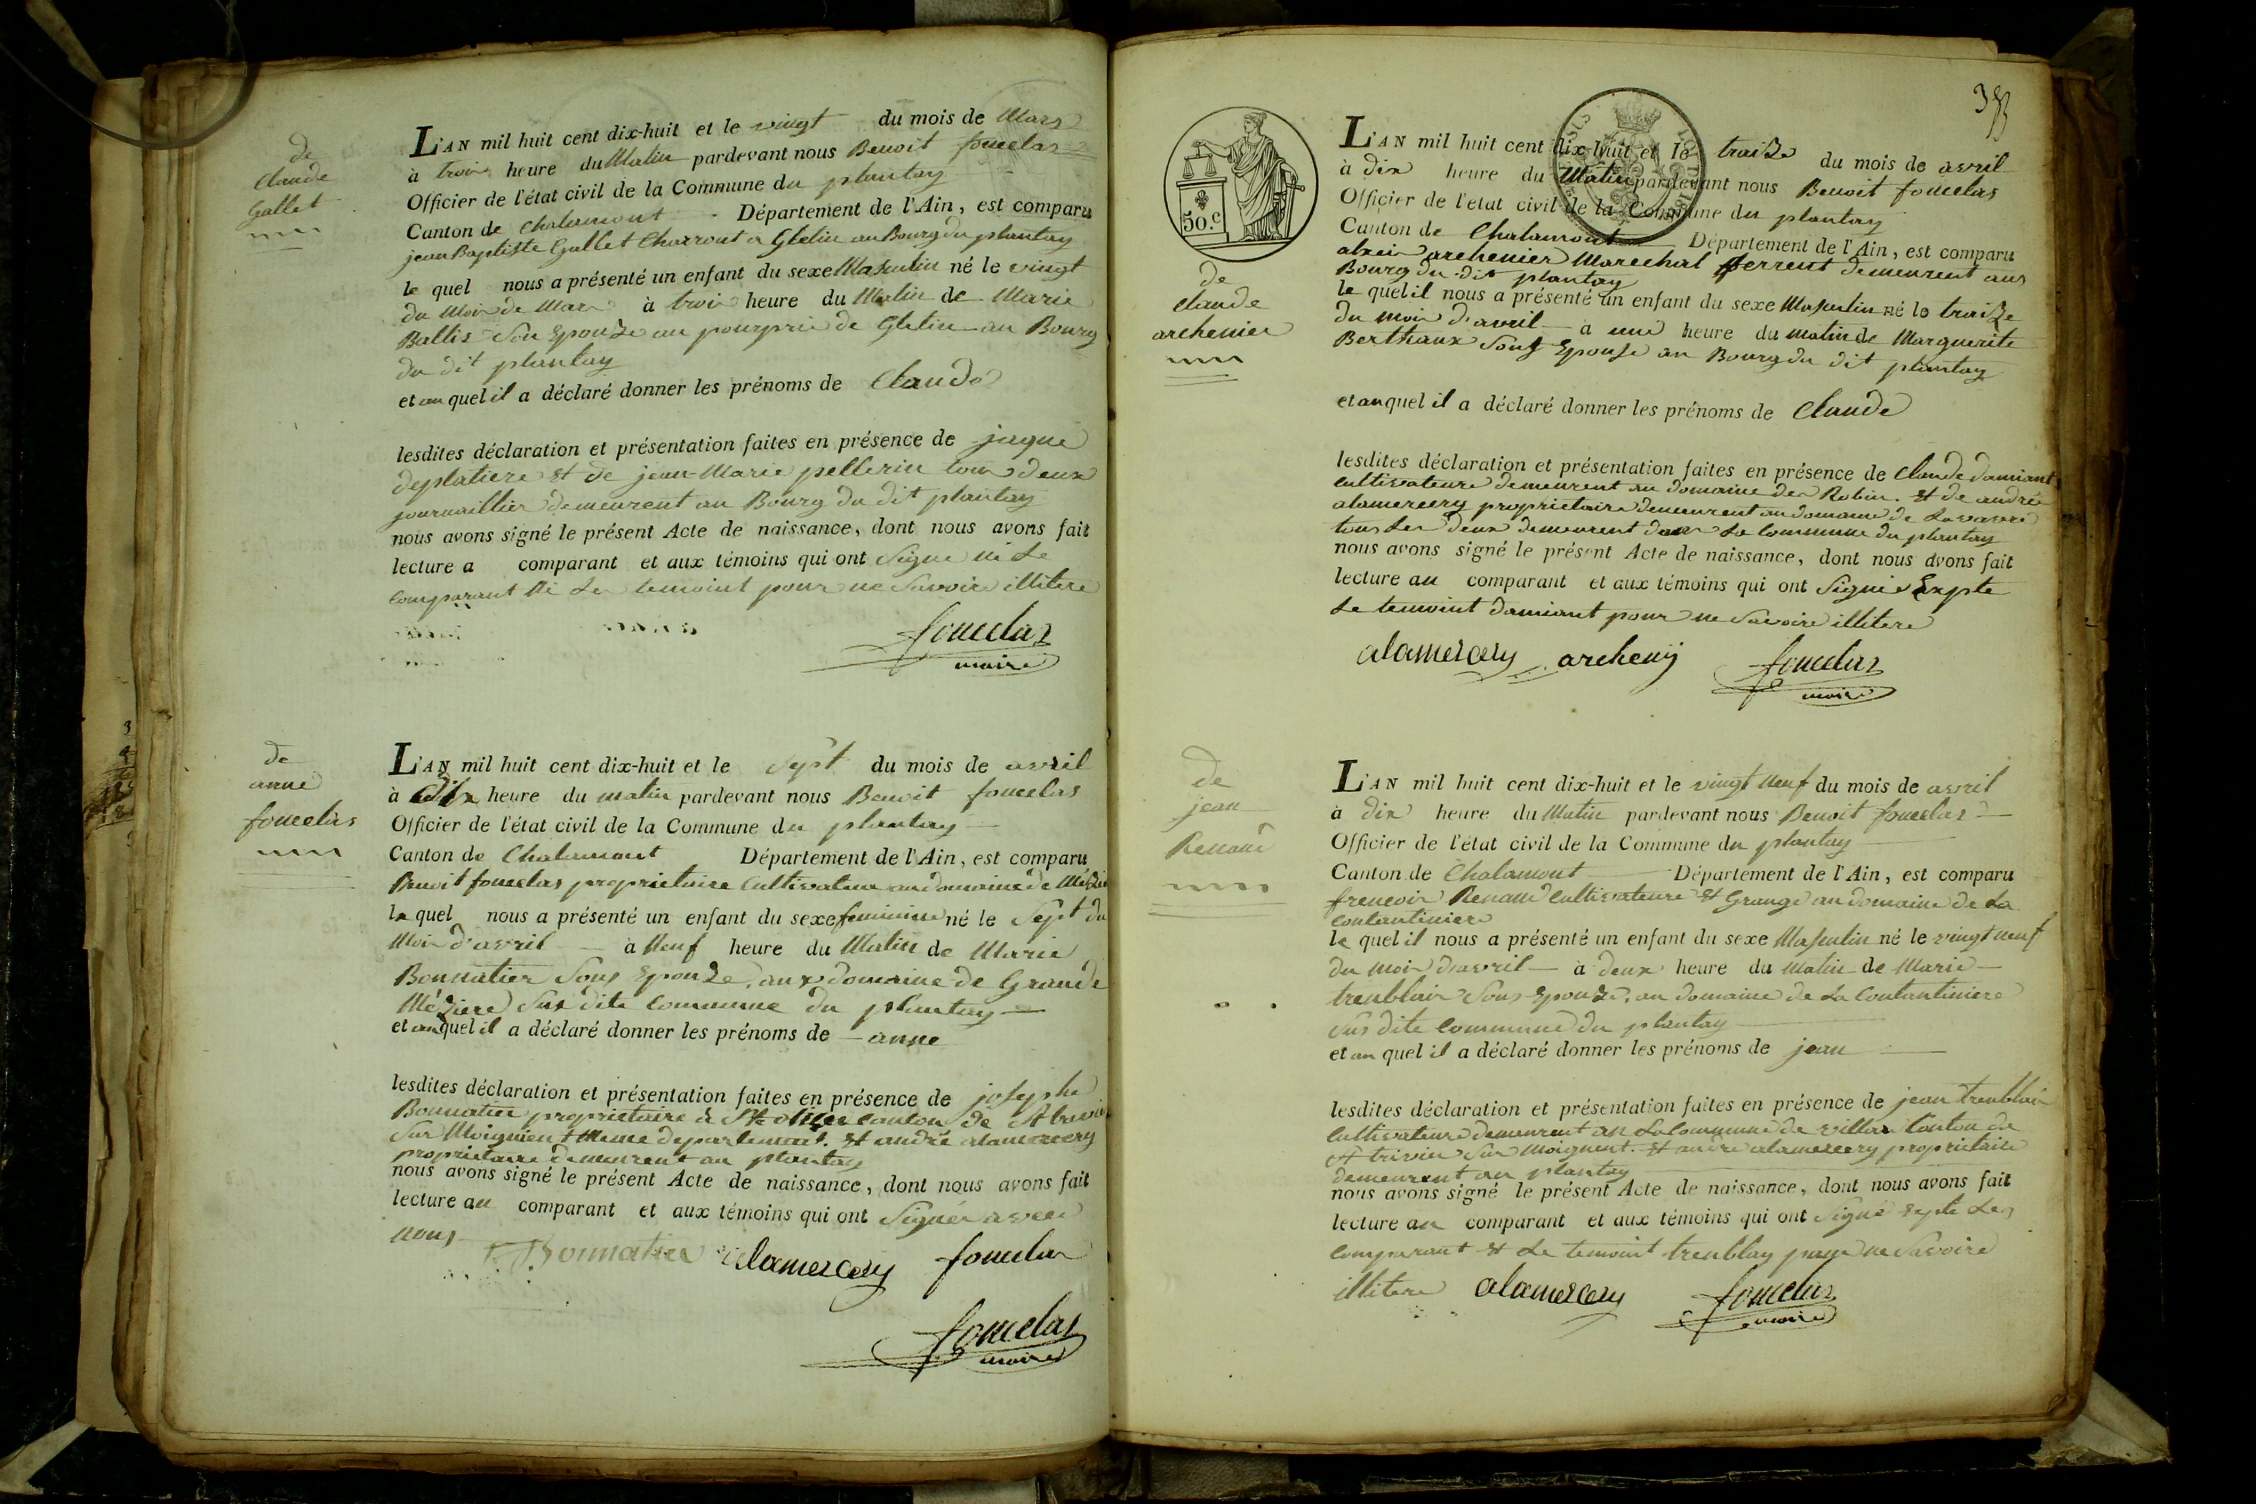 de
Claude
Gallet
L'AN mil huit cent dix-huit et le vingt du mois de Mars
à trois heure du Matin pardevant nous Benoit fouuelas
Officier de l'état civil de la Commune du plantay
Canton de Chalamont Département de l'Ain, est comparu
jean Baptiste Gallet Charront a Gletin au Bourg du plantay
le quel nous a présenté un enfant du sexe Masculin né le vingt
du Mois de Mars à trois heure du Matin de Marie
Ballis Son Epouze au pourprie de Gletin au Bourg
du dit plantay
et au quel il a déclaré donner les prénoms de Claude
lesdites déclaration et présentation faites en présence de jaque
deplatiere et de jean-Marie pellerin tous deux
journaillier demeurent au Bourg du dit plantay
nous avons signé le présent Acte de naissance, dont nous avons fait
lecture a comparant et aux témoins qui ont Signe ni Le
comparant Ni Les temoint pour ne Savoire illitere
fouuelas
maire
de
anne
fouuelas
L'AN mil huit cent dix-huit et le Sept du mois de avril
à dix heure du matin pardevant nous Benoit fouuelas
Officier de l'état civil de la Commune du plantay
Canton de Chalamont Département de l'Ain, est comparu
Benoit fouuelas proprietaire Cultivateur au domaine de
le quel nous a présenté un enfant du sexe feminine né le Sept du
Mois d'avril à Neuf heure du Matin de Marie
Bonnatier Sous Epouze, aux domaine de Grande
Méziere Sus dite Commune du plantay
et au quel il a déclaré donner les prénoms de anne
lesdites déclaration et présentation faites en présence de josephe
Bonnatier proprietaire à Ste olive canton de St trivier
Sur Moignient Meme departement. et andré alamercery
proprietaire demeurent au plantay
nous avons signé le présent Acte de naissance, dont nous avons fait
lecture au comparant et aux témoins qui ont Signér avec
nous
Bonnatier alamercery fouuelas
fouuelas
maire
353
50.c
de
Claude
archenier
L'AN mil huit cent dix-huit et le traize du mois de avril
à dix heure du Matin pardevant nous Benoit fouuelas
Officier de l'état civil de la Commune du plantay
Canton de Chalamont Département de l'Ain, est comparu
alexis archenier Marechal ferrent demeurent aus
Bourg du dit plantay
le quel il nous a présenté un enfant du sexe Masculin né le traize
du mois d'avril à une heure du matin de Marguerite
Berthaux Sous Epouse au Bourg du dit plantay
et au quel il a déclaré donner les prénoms de Claude
lesdites déclaration et présentation faites en présence de Claude damiant
cultivateure demeurent au domaine des Robin. et de andrée
alamercery proprietaire demeurent au domaine de Lavavre
tous Les deux demeurent dans La commune du plantay
nous avons signé le présent Acte de naissance, dont nous avons fait
lecture au comparant et aux témoins qui ont Signé Expte
Le temoint damiant pour ne Savoire illitere
alamercery archeny fouuelas
maire
de
jean
Renaud
L'AN mil huit cent dix-huit et le vingt Neuf du mois de avril
à dix heure du Matin pardevant nous Benoit fouuelas
Officier de l'état civil de la Commune du plantay
Canton de Chalamont Département de l'Ain, est comparu
frencois Renaud Cultivateure et Grangé au domaine de La
Contantiniere
le quel il nous a présenté un enfant du sexe Masculin né le vingt neuf
du mois d'avril à deux heure du Matin de Marie
trenblais Sous Epouze, au domaine de La Contantiniere
Sus dite Commune du plantay
et au quel il a déclaré donner les prénoms de jean
lesdites déclaration et présentation faites en présence de jean trenblais
Cultivateure demeurent an La Commune de villar Canton de
St trivier Sur Moignent. et andré alamercery proprietaire
demeurent au plantay
nous avons signé le présent Acte de naissance, dont nous avons fait
lecture au comparant et aux témoins qui ont Signé Expte Les
comparant et Le temoint trenblay pour ne Savoire
illitere alamercery fouuelas
maire